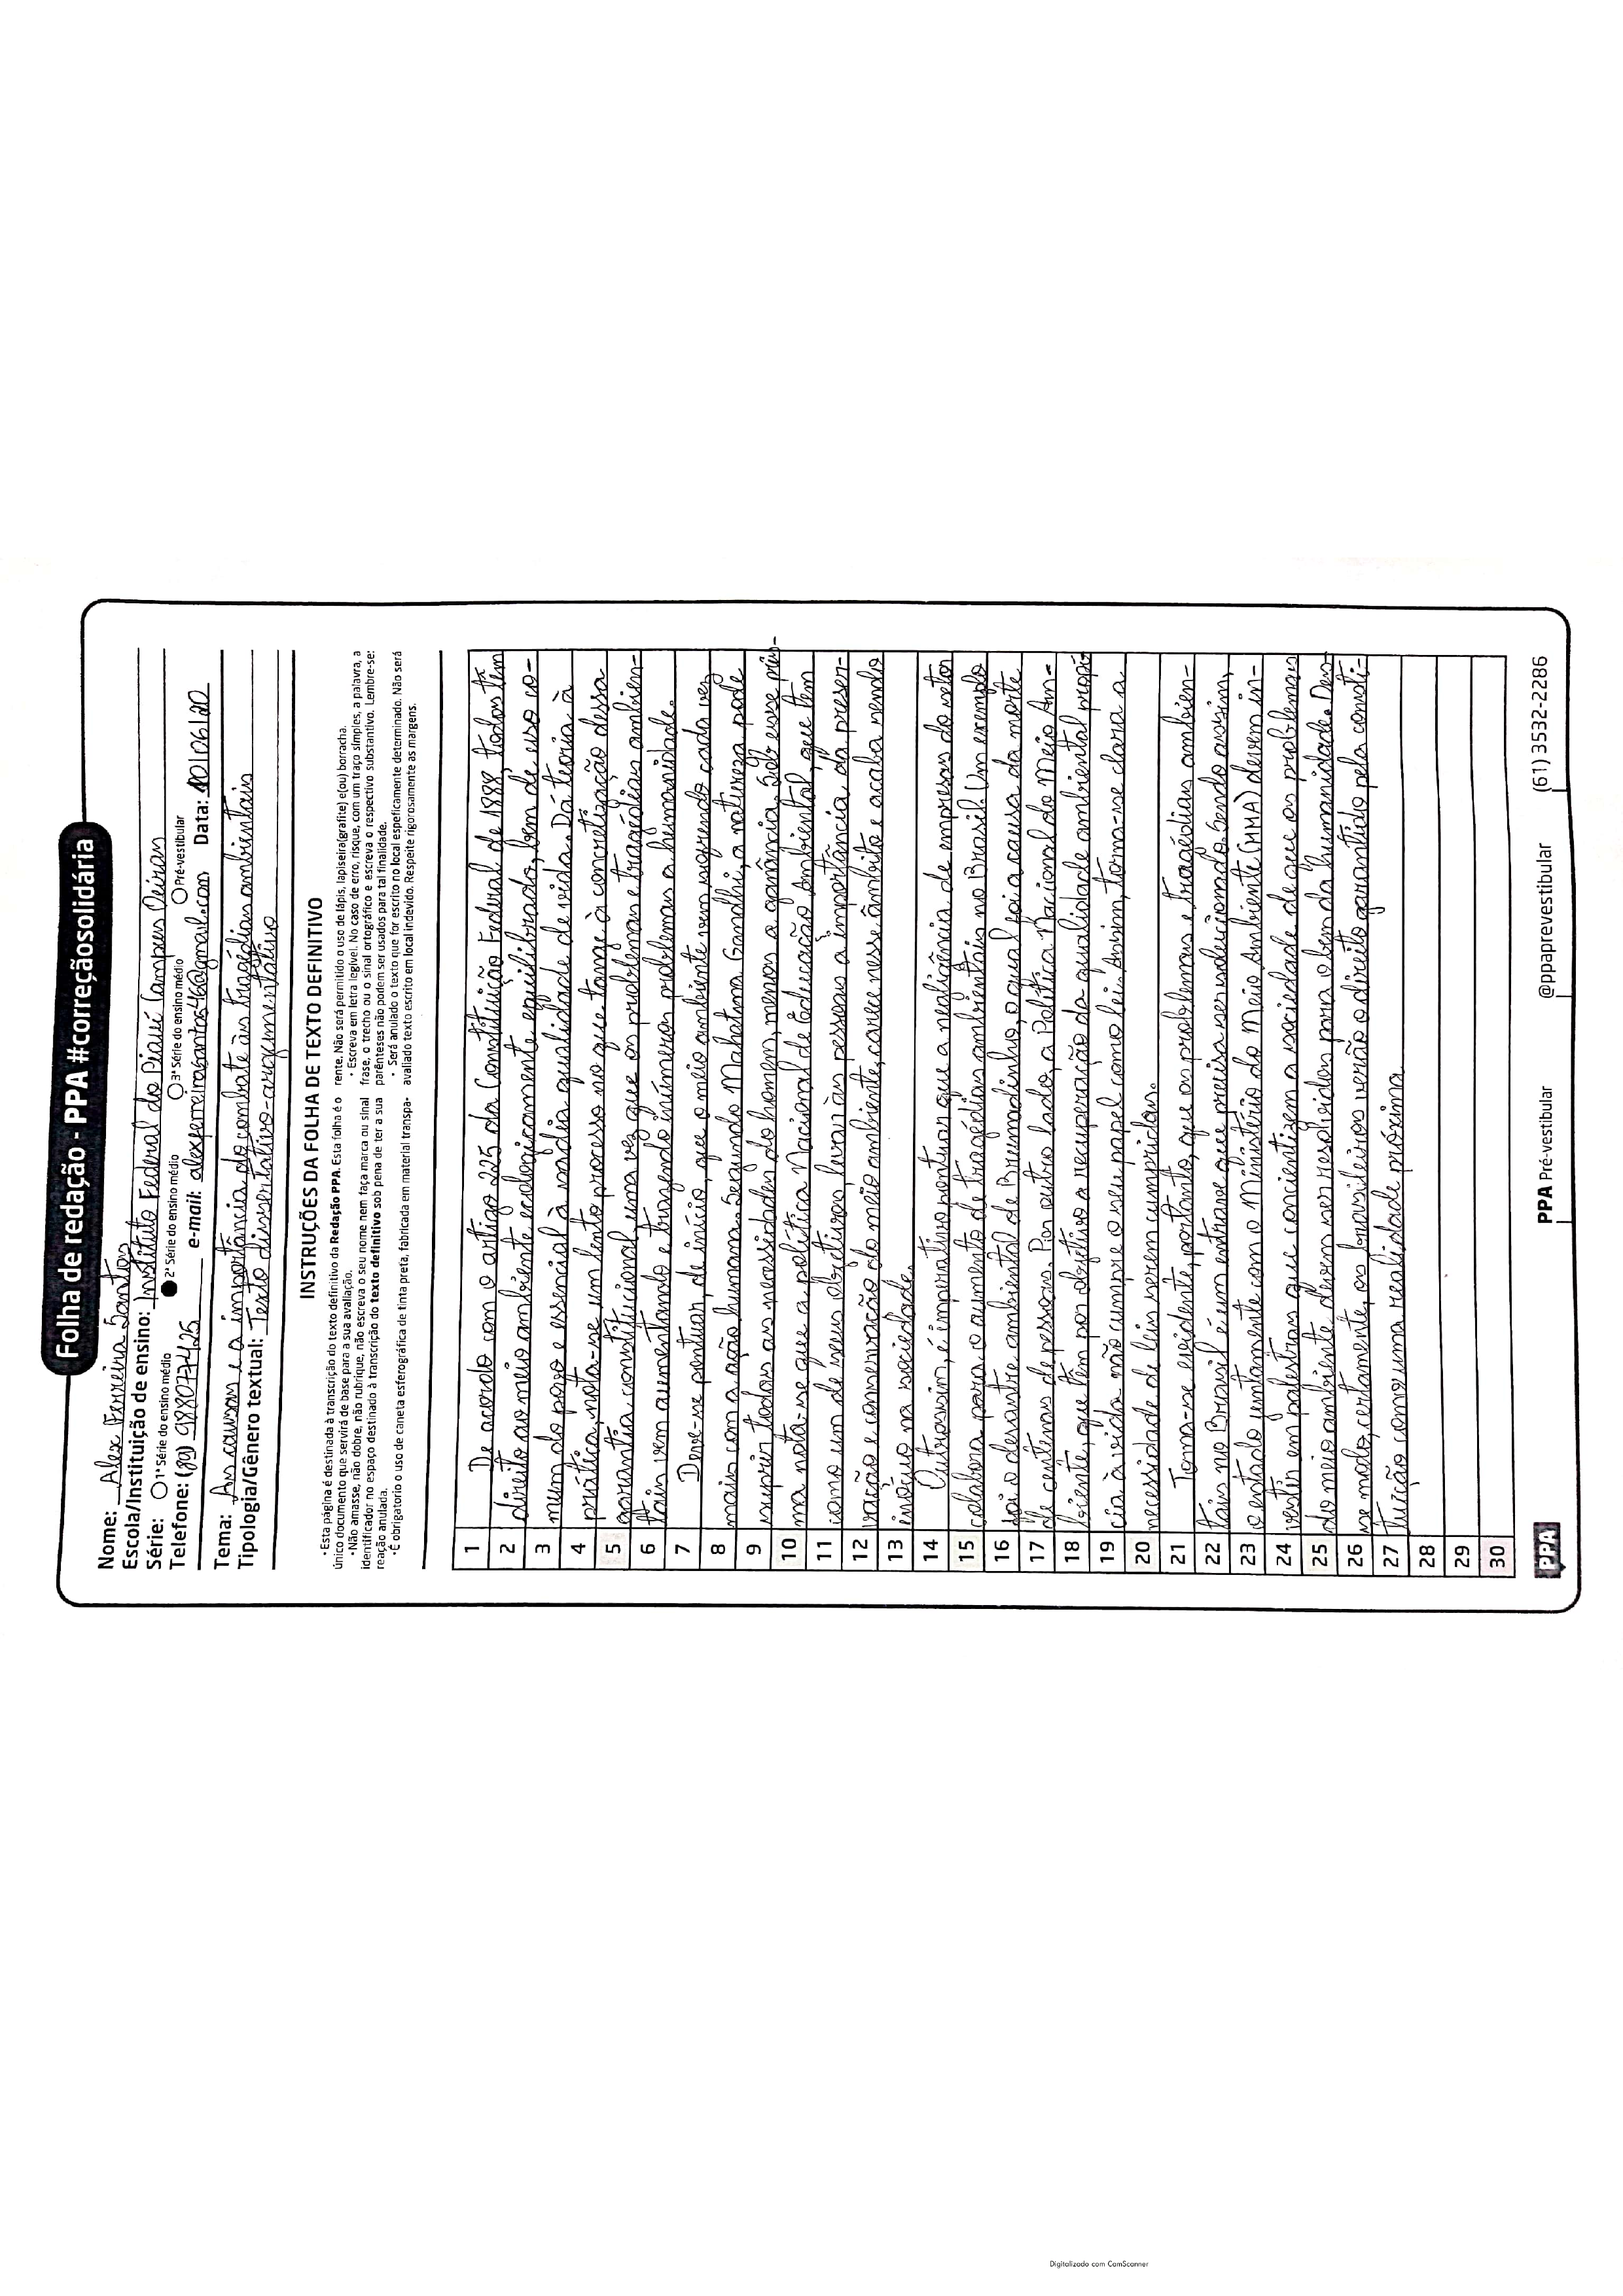 Folha de redação - PPA #correçãosolidária
Nome: Alex Ferreira Santos
Escola/Instituição de ensino: Instituto Federal do Piauí Campus Oeiras
Série: 1ª Série do ensino médio 2ª Série do ensino médio 3ª Série do ensino médio Pré-vestibular
Telefone: (89) 988077425 e-mail: alexferreirasantos466@gmail.com Data: 10/06/20
Tema: As causas e a importância do combate às tragédias ambientais
Tipologia/Gênero textual: Texto dissertativo-argumentativo
INSTRUÇÕES DA FOLHA DE TEXTO DEFINITIVO
• Esta página é destinada à transcrição do texto definitivo da Redação PPA. Esta folha é o
único documento que servirá de base para a sua avaliação.
• Não amasse, não dobre, não rubrique, não escreva o seu nome nem faça marca ou sinal
identificador no espaço destinado à transcrição do texto definitivo sob pena de ter a sua
reação anulada.
• É obrigatorio o uso de caneta esferográfica de tinta preta, fabricada em material transpa-
rente. Não será permitido o uso de lápis, lapiseira(grafite) e(ou) borracha.
• Escreva em letra legível. No caso de erro, risque, com um traço simples, a palavra, a
frase, o trecho ou o sinal ortográfico e escreva o respectivo substantivo. Lembre-se:
parênteses não podem ser usados para tal finalidade.
• Será anulado o texto que for escrito no local espeficamente determinado. Não será
avaliado texto escrito em local indevido. Respeite rigorosamente as margens.
1 De acordo com o artigo 225 da Constituição Federal de 1988, todos têm
2 direito ao meio ambiente ecologicamente equilibrado, bem de uso co-
3 mum do povo e essencial à sadia qualidade de vida. Dá teoria à
4 prática, nota-se um lento processo no que tange à concretização dessa
5 garantia constitucional, uma vez que os problemas e tragédias ambien-
6 tais vem aumentando e trazendo inúmeros problemas a humanidade.
7 Deve-se pontuar, de início, que o meio ambiente vem sofrendo cada vez
8 mais com a ação humana. Segundo Mahatma Gandhi, a natureza pode
9 suprir todas as necessidades do homem, menos a ganância. Sob esse pris-
10 ma nota-se que a política Nacional de Educação Ambiental, que têm
11 como um de seus objetivos, levar às pessoas a importância da preser-
12 vação e conservação do meio ambiente, carece nesse âmbito e acaba sendo
13 inócuo na sociedade.
14 Outrossim, é imperativo pontuar que a negligência de empresas do setor
15 colabora para o aumento de tragédias ambientais no Brasil. Um exemplo
16 foi o desastre ambiental de Brumadinho, o qual foi a causa da morte
17 de centenas de pessoas. Por outro lado, a Política Nacional do Meio Am-
18 biente, que têm por objetivo a recuperação da qualidade ambiental propí-
19 cia à vida não cumpre o seu papel como lei. Assim, torna-se clara a
20 necessidade de leis serem cumpridas.
21 Torna-se evidente, portanto, que os problemas e tragédias ambien-
22 tais no Brasil é um entrave que precisa ser solucionado. Sendo assim,
23 o estado juntamente com o Ministério do Meio Ambiente (MMA) devem in-
24 vestir em palestras que concientizem a sociedade de que os problemas
25 do meio ambiente devem ser resolvidos para o bem da humanidade. Des-
26 se modo, certamente, os brasileiros verão o direito garantido pela consti-
27 tuição como uma realidade próxima.
28
29
30
PPA PPA Pré-vestibular @ppaprevestibular (61) 3532-2286
Digitalizado com CamScanner